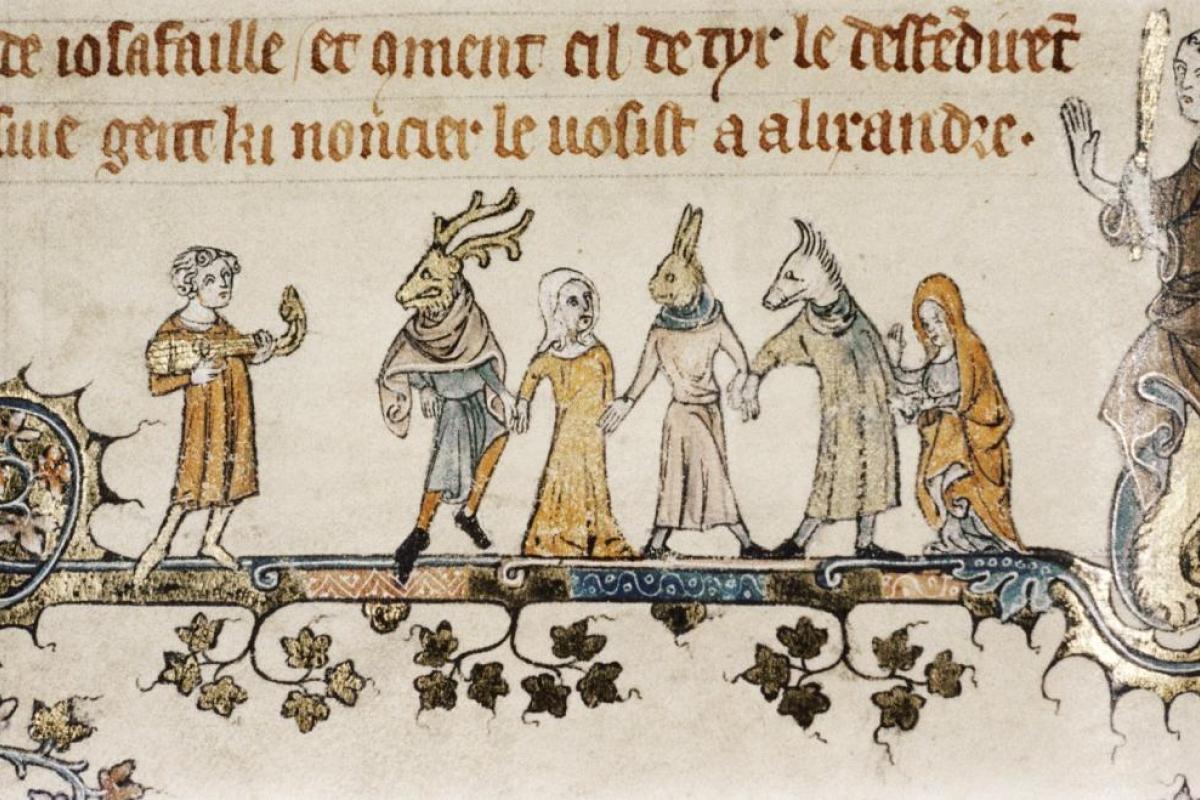 de iosafaille et qment cil de tyr le deffēdirēt
siue gent ki noncier le uosist a alixandre.